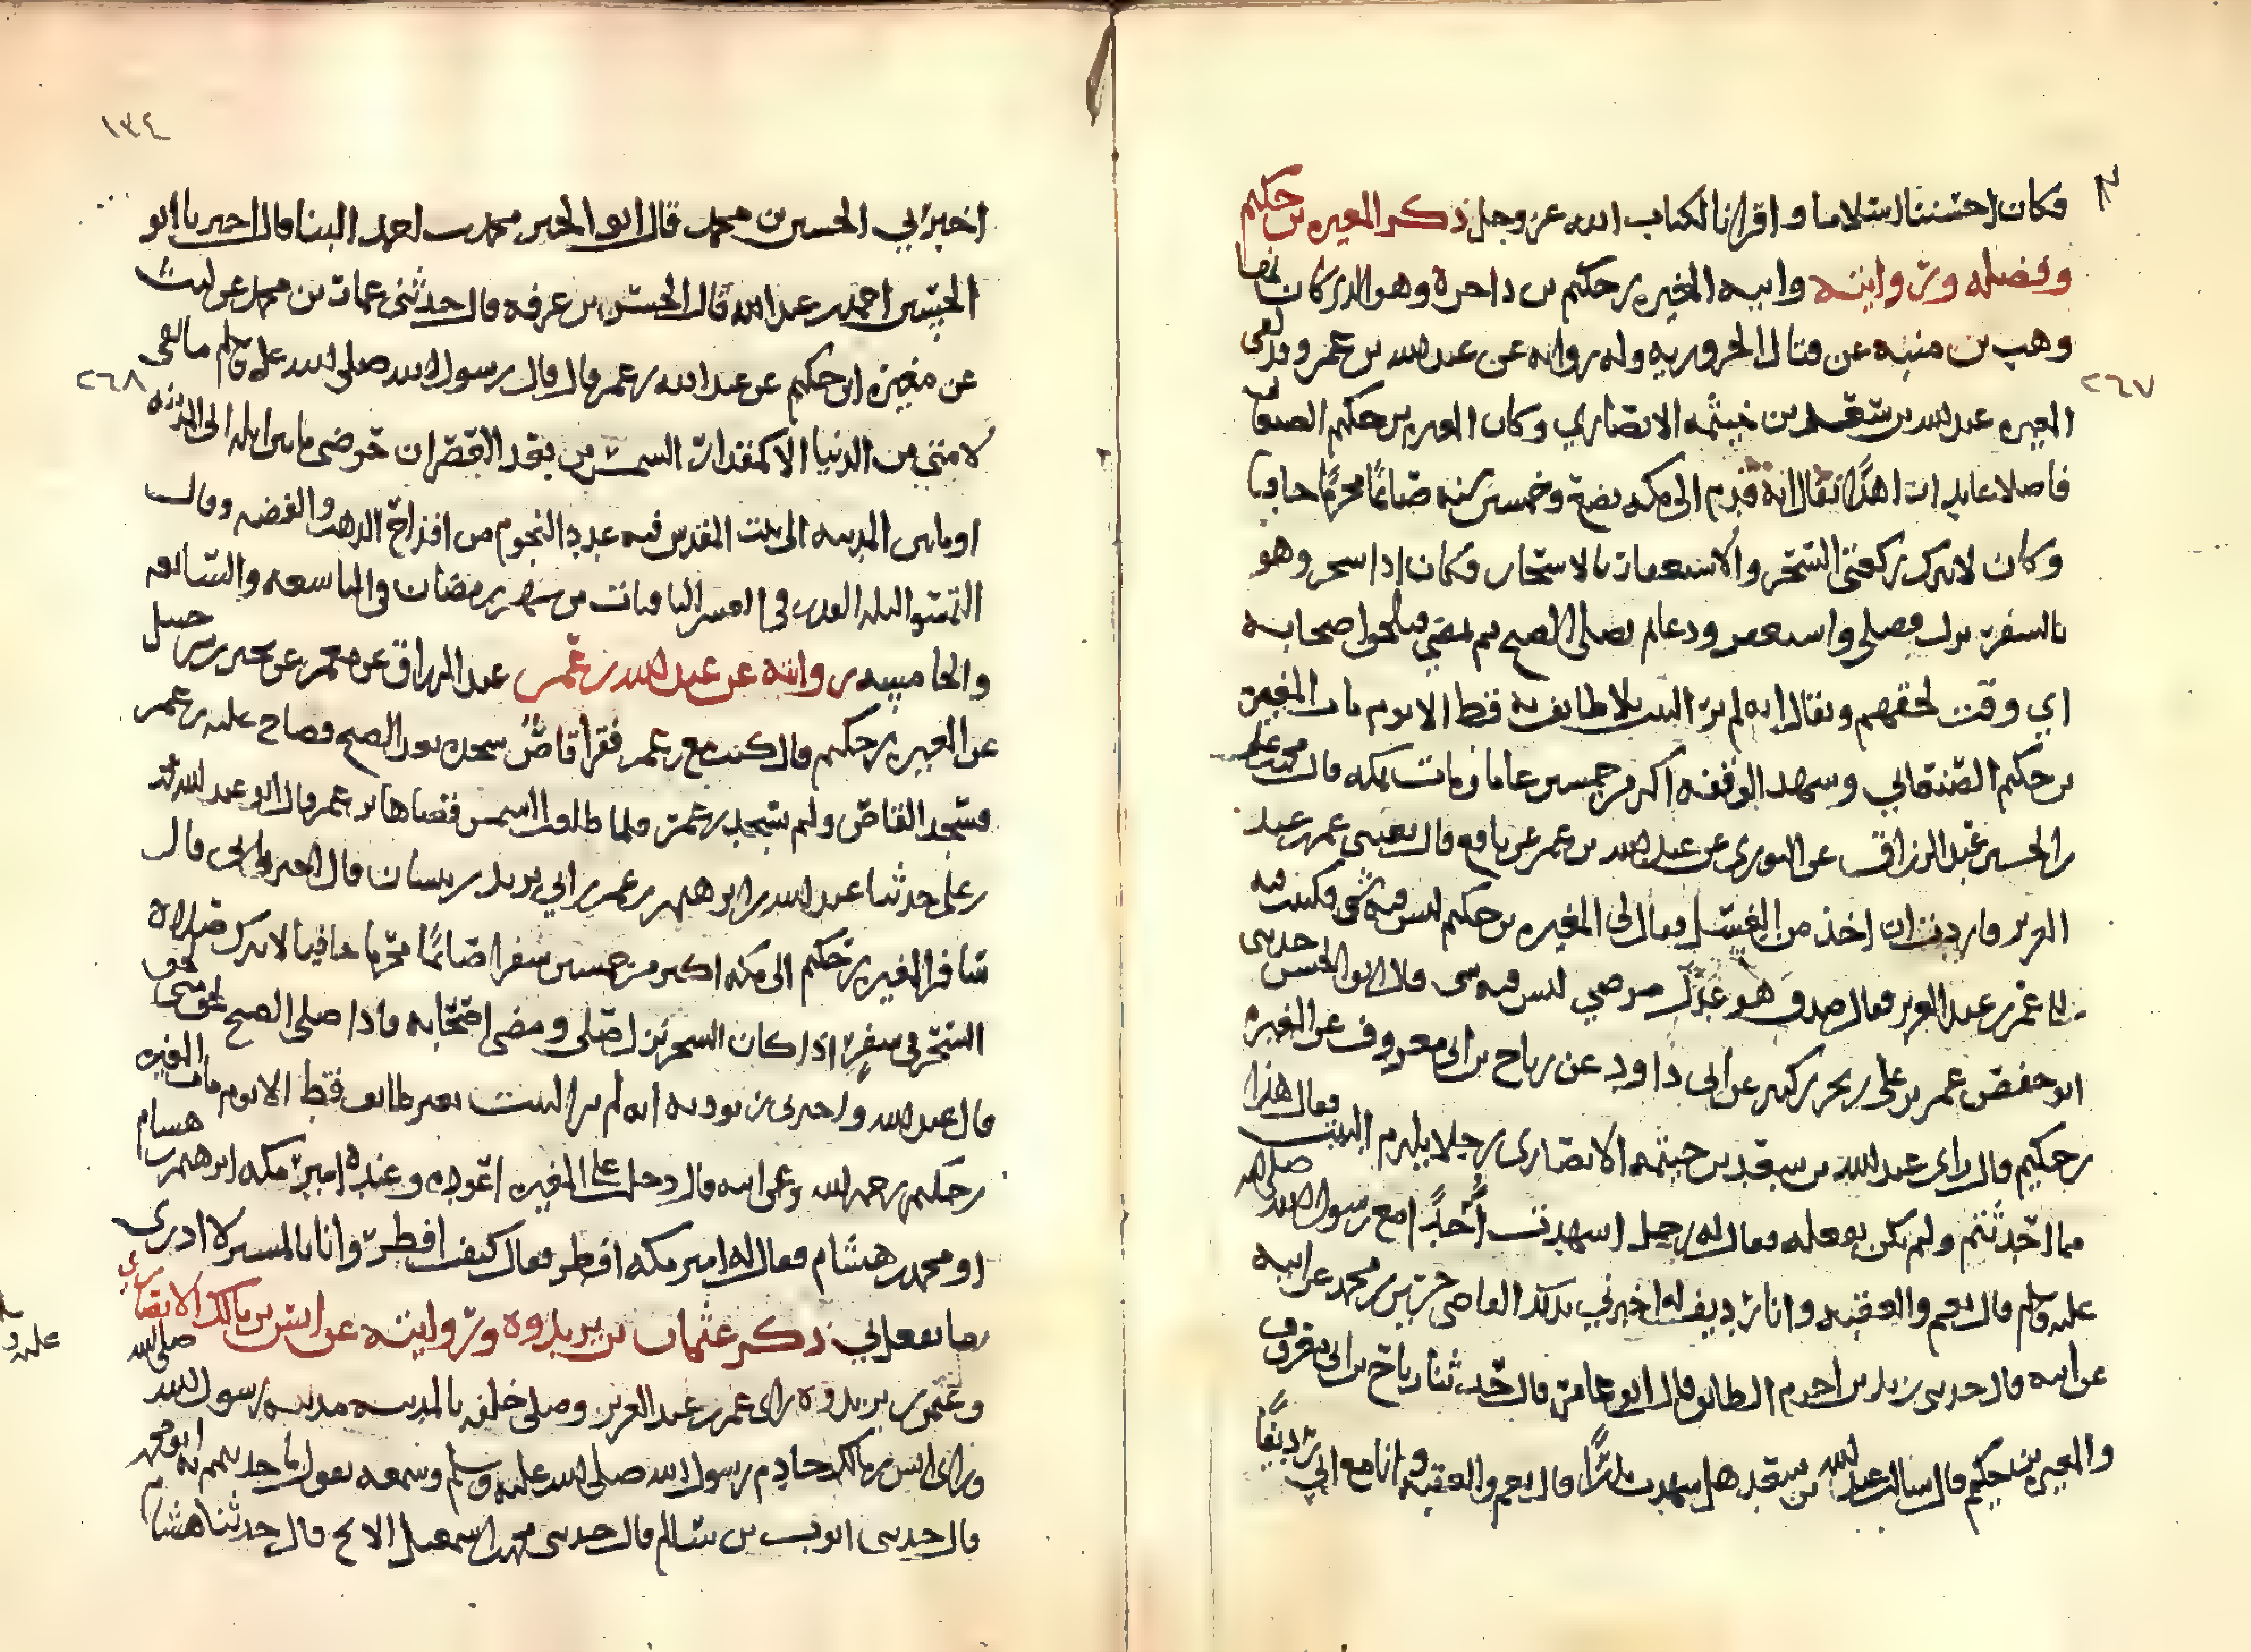 فكان احسننا اسلاما واقرانا لكتاب الله عز وجل ذكر المغيره بن حكيم
وفضله وروايته وابيه المغيره بن حكيم من
وهب بن منبه عن قتال الحروريه وله روايه عن عبد الله بن عمر وقد لقى
٢٦٧
المغيره عبد الله بن سعد بن خيثمه الانصاري وكان المغيره بن حكيم الصنعاني
فاضلا عابدا يقال انه قدم الى مكه بضع وخمسين سنه صائمًا محرمًا حافيا
وكان لا يترك ركعتى السحر والاستغفار بالاسحار فكان اذا سحر وهو
بالسفر نزل فصلى واستغفر ودعا ثم يصلى الصبح ثم يمضي فيلحق اصحابه
اي وقت لحقهم ويقال انه لم ير البيت بلا طايف به قط الا يوم مات المغيره
بن حكيم الصنعاني وشهد الوقفه اكثر من خمسين عاما ومات بمكه قال
بن الحسين عبد الرزاق عن الثورى عن عبد الله بن عمر عن نافع قال بعثنى عمر بن عبد
العزيز فاردت ان اخذ من العسل فقال لى المغيره بن حكيم ليس فيه شى فكتبت فيه
الى عمر بن عبد العزيز فقال صدق هو عدل مرضي ليس فيه شى قال ابو الحسن حدثنى
ابو حفص عمر بن على بن بحر بن كثير عن ابى داود عن رباح بن ابى معروف عن المغيره
بن حكيم قال راى عبد الله بن سعد بن خيثمه الانصارى رجلا يلزم البيت فقال هذا
مما احدثتم ولم نكن نفعله فقال له رجل اشهدت احدًا مع رسول الله صلى الله
عليه وسلم قال نعم والعقبه وانا رديف اخبرني بذلك القاضى بن محمد عن ابيه
عن ابيه قال حدثنى زيد بن اخزم الطائى قال ابو عامر قال حدثنا رباح بن ابى معروف
والمغيره بن حكيم قال سالت عبد الله بن سعد هل شهدت بدرًا قال نعم والعقبه وانا مع ابي رديفًا
١٣٤
اخبرني الحسين بن محمد قال ابو الخير محمد بن احمد البنا قال اخبرنا ابو
الحسين احمد بن عبد الله قال الحسن بن عرفه قال حدثنى عمار بن محمد عن ليث
عن مغيره ابن حكيم عن عبد الله بن عمر قال قال رسول الله صلى الله عليه وسلم ما بقى
٢٦٨
لامتي من الدنيا الا كمقدار الشمس من بعد العصر ان حوضى ما بين ايله الى المدينه
او ما بين المدينه الى بيت المقدس فيه عدد النجوم من اقداح الذهب والفضه وقال
التمسوا ليله القدر فى العشر الباقيات من شهر رمضان فى التاسعه والسابعه
والخامسه روايته عن عبد الله بن عمر عبد الرزاق عن معمر عن
عن المغيره بن حكيم قال كنت مع بن عمر فقرا قاصٌ سجده بعد الصبح فصاح عليه بن عمر
فسجد القاص ولم يسجد بن عمر فلما طلعت الشمس قضاها بن عمر قال ابو عبد الله
بن على حدثنا عبد الله بن ابرهيم بن عمر بن ابي يزيد بن قال اخبرنى ابى قال
سافر المغيره بن حكيم الى مكه اكثر من خمسين سفرا صائمًا محرما حافيا لا يترك صلاه
السحر في سفر اذا كان السحر نزل فصلى ومضى اصحابه فاذا صلى الصبح لحق متى لحق
قال عبد الله واخبرنى انه لم ير البيت بغير طائف قط الا يوم مات المغيره
بن حكيم رحمه الله وعن ابيه قال دخل على المغيره اعوده وعنده امير مكه ابرهيم بن هشام
او محمد بن هشام فقال له امير مكه افطر فقال كيف افطر وانا لا ادرى
ما يفعل بي ذكر عثمان بن يزدويه وروايته عن انس بن مالك الانصاري
وعثمن بن يزدويه راى عمر بن عبد العزيز وصلى خلفه بالمدينه مدينه رسول الله صلى الله
وراى انس بن مالك خادم رسول الله صلى الله عليه وسلم وسمعه يقول ما
قال حدثنى ايوب بن سالم قال حدثنى محمد بن اسمعيل قال حدثنا هشام